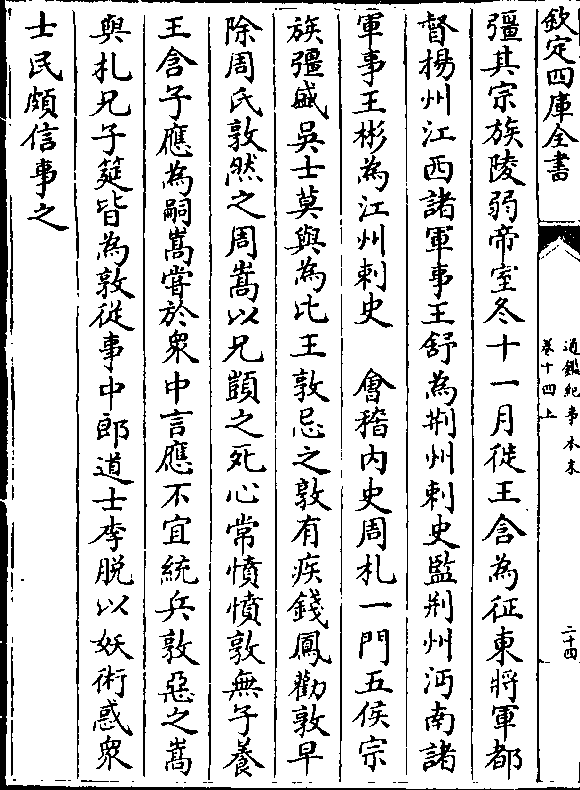 欽定四庫全書
通鑑紀事本末
卷十四上
二十四
彊其宗族陵弱帝室冬十一月徙王含為征東將軍都
督揚州江西諸軍事王舒為荆州刺史監荆州沔南諸
軍事王彬為江州刺史　會稽内史周札一門五侯宗
族彊盛吳士莫與為比王敦忌之敦有疾錢鳳勸敦早
除周氏敦然之周嵩以兄顗之死心常憤憤敦無子養
王含子應為嗣嵩嘗於衆中言應不宜統兵敦惡之嵩
與札兄子筵皆為敦從事中郎道士李脱以妖術惑衆
士民頗信事之